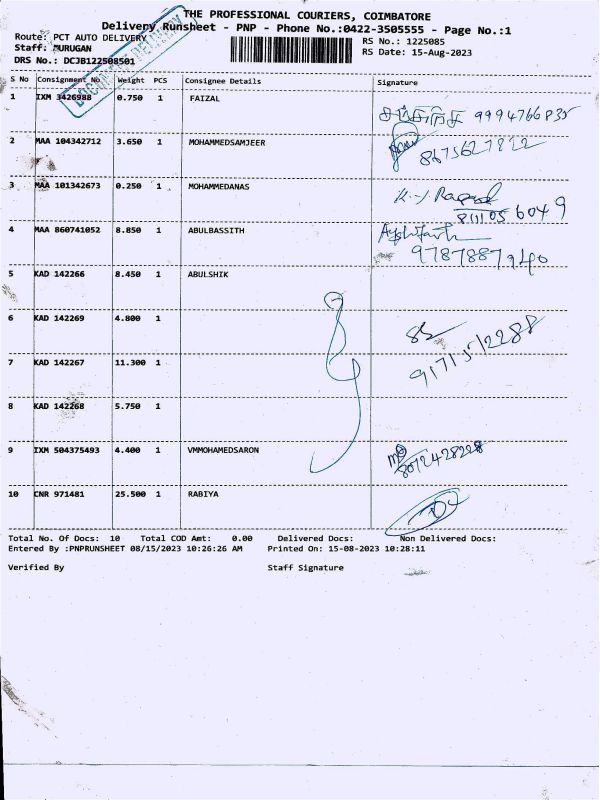 THE PROFESSIONAL COURIERS, COIMBATORE
Delivery Runsheet - PNP - Phone No.:0422-3505555 - Page No.:1
Route: PCT AUTO DELIVERY
RS No.: 1225085
Staff: MURUGAN
RS Date: 15-Aug-2023
DRS No.: DCJB122508501
S No Consignment No Weight PCS Consignee Details Signature
1 IXM 3426988 0.750 1 FAIZAL
9994766835
2 MAA 104342712 3.650 1 MOHAMMEDSAMJEER
8675627822
3 MAA 101342673 0.250 1 MOHAMMEDANAS
8111056049
4 MAA 860741052 8.850 1 ABULBASSITH
9787887940
5 KAD 142266 8.450 1 ABULSHIK
6 KAD 142269 4.800 1
9171512288
7 KAD 142267 11.300 1
8 KAD 142268 5.750 1
9 IXM 504375493 4.400 1 VMMOHAMEDSARON
8012428228
10 CNR 971481 25.500 1 RABIYA
Total No. Of Docs: 10 Total COD Amt: 0.00 Delivered Docs: Non Delivered Docs:
Entered By :PNPRUNSHEET 08/15/2023 10:26:26 AM Printed On: 15-08-2023 10:28:11
Verified By Staff Signature